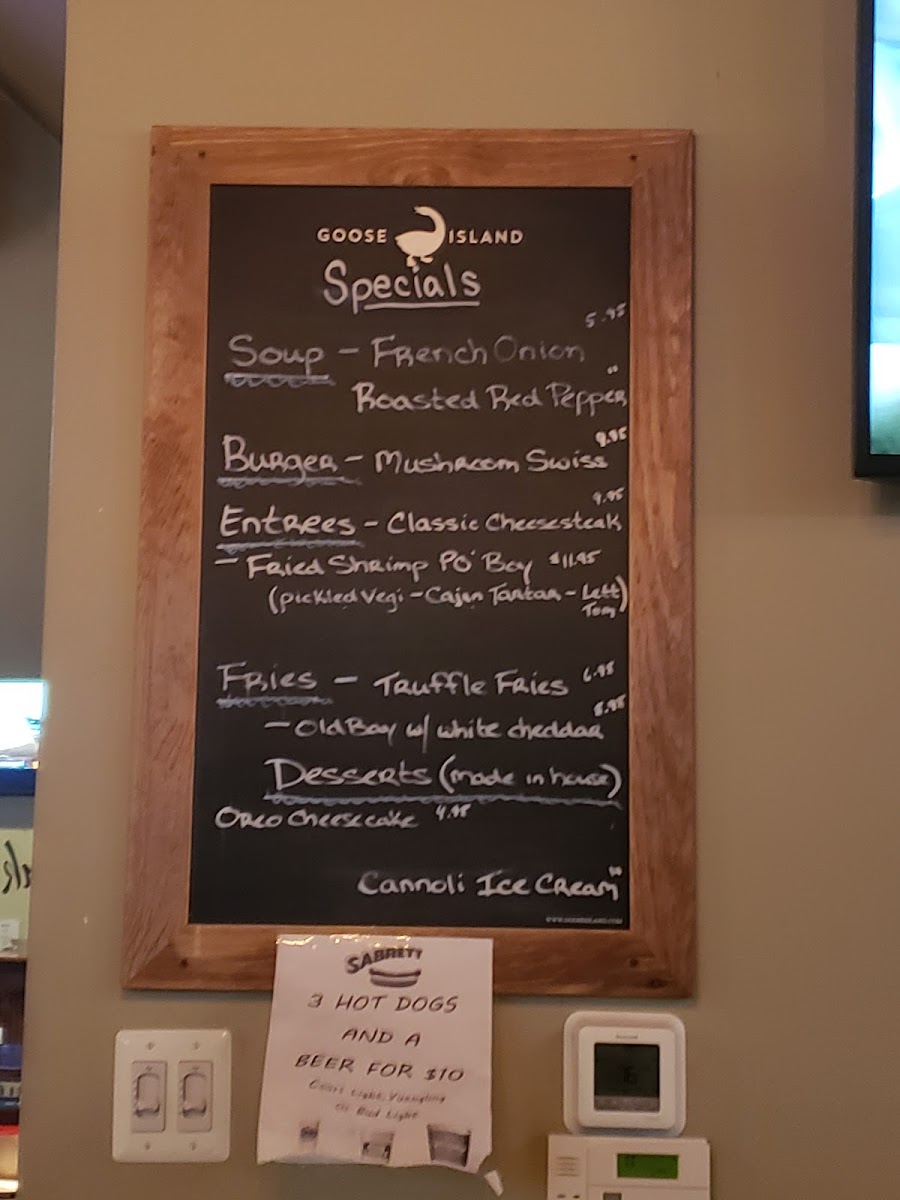 GOOSE ISLAND
Specials
5.95
Soup - French Onion
"
Roasted Red Pepper
9.95
Burger - Mushroom Swiss
9.95
Entrees - Classic Cheesesteak
- Fried Shrimp Po' Boy $11.95
(pickled Vegi - Cajun Tartar - Lett
Tom)
Fries - Truffle Fries 6.95
- Old Bay w/ white cheddar 5.95
Desserts (made in house)
Oreo Cheesecake 4.95
Cannoli Ice Cream "
SABRETT
3 HOT DOGS
AND A
BEER FOR $10
Coors Light, Yuengling
or Bud Light